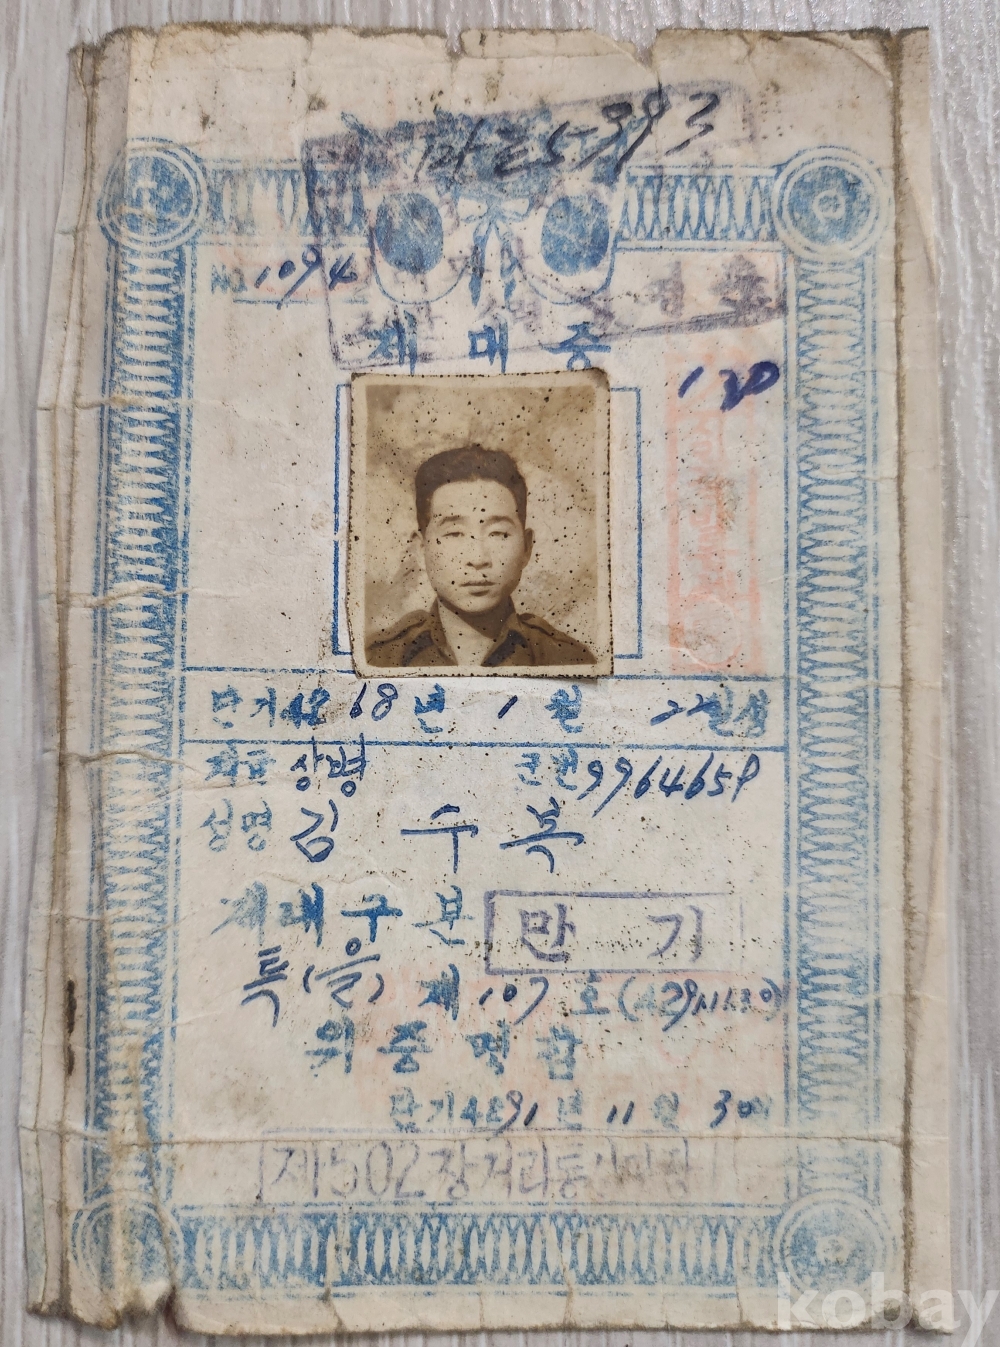 No. 1094
제대증
130
단기 4268년 1월 22일생
계급 상병 군번 9964659
성명 김수복
제대구분 만기
특(을) 제107호(4291.11.30)
위증명함
단기 4291년 11월 30일
제502장거리통신
kobay